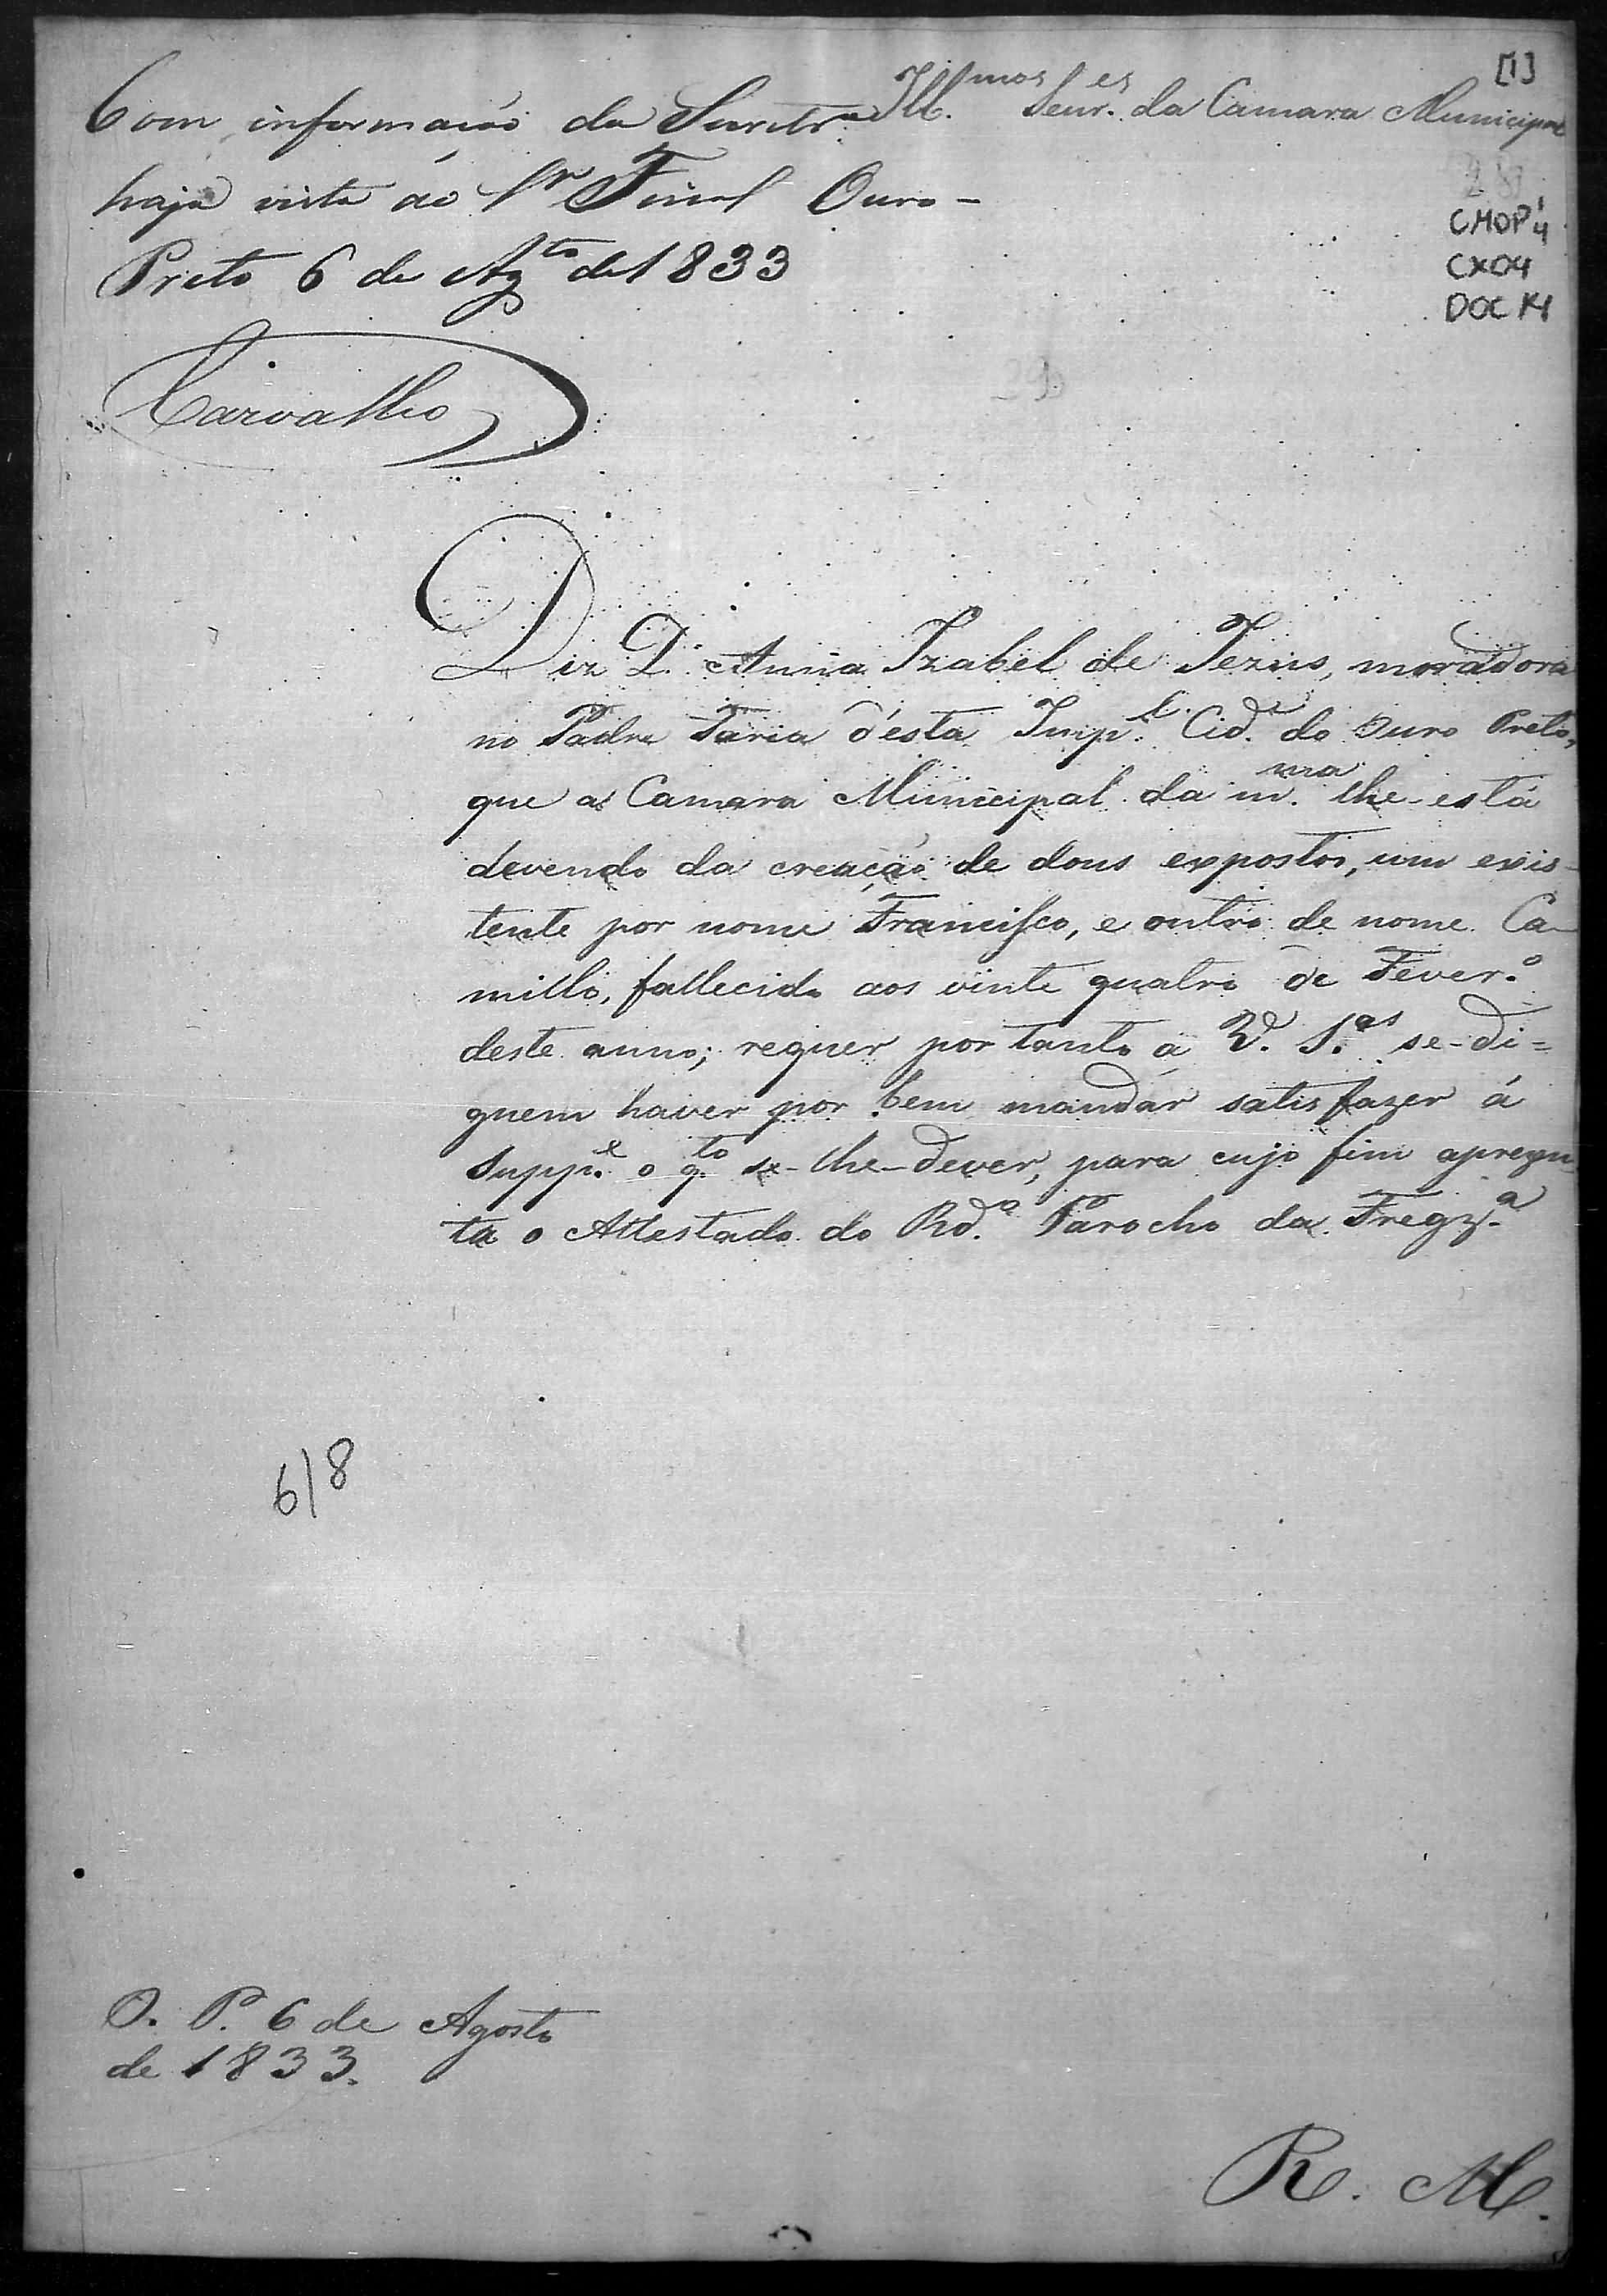 [1]
Ill.mos Senr.es da Camara Municipal
Com informação da Secretr.a
haja vista ao Sr Fiscal Ouro-
Preto 6 de Agto de 1833
Carvalho
CMOP 1/4
CX04
DOC 14
Diz D. Anna Izabel de Jezus, moradora
no Padre Faria d'ésta Imp.l Cid.e do Ouro Preto,
que a Camara Municipal da m.ma lhe-está
devendo da creação de dous expostos, um exis-
tente por nome Francisco, e outro de nome Ca-
millo, fallecido aos vinte quatro de Fever.o
deste anno; requer por tanto a V. S.as se-di=
gnem haver por bem mandar satisfazer á
Supp.e o q.to se-lhe-dever, para cujo fim aprezen-
ta o Attestado do Rd.o Parocho da Fregz.a
6/8
O. P. 6 de Agosto
de 1833.
R. M.